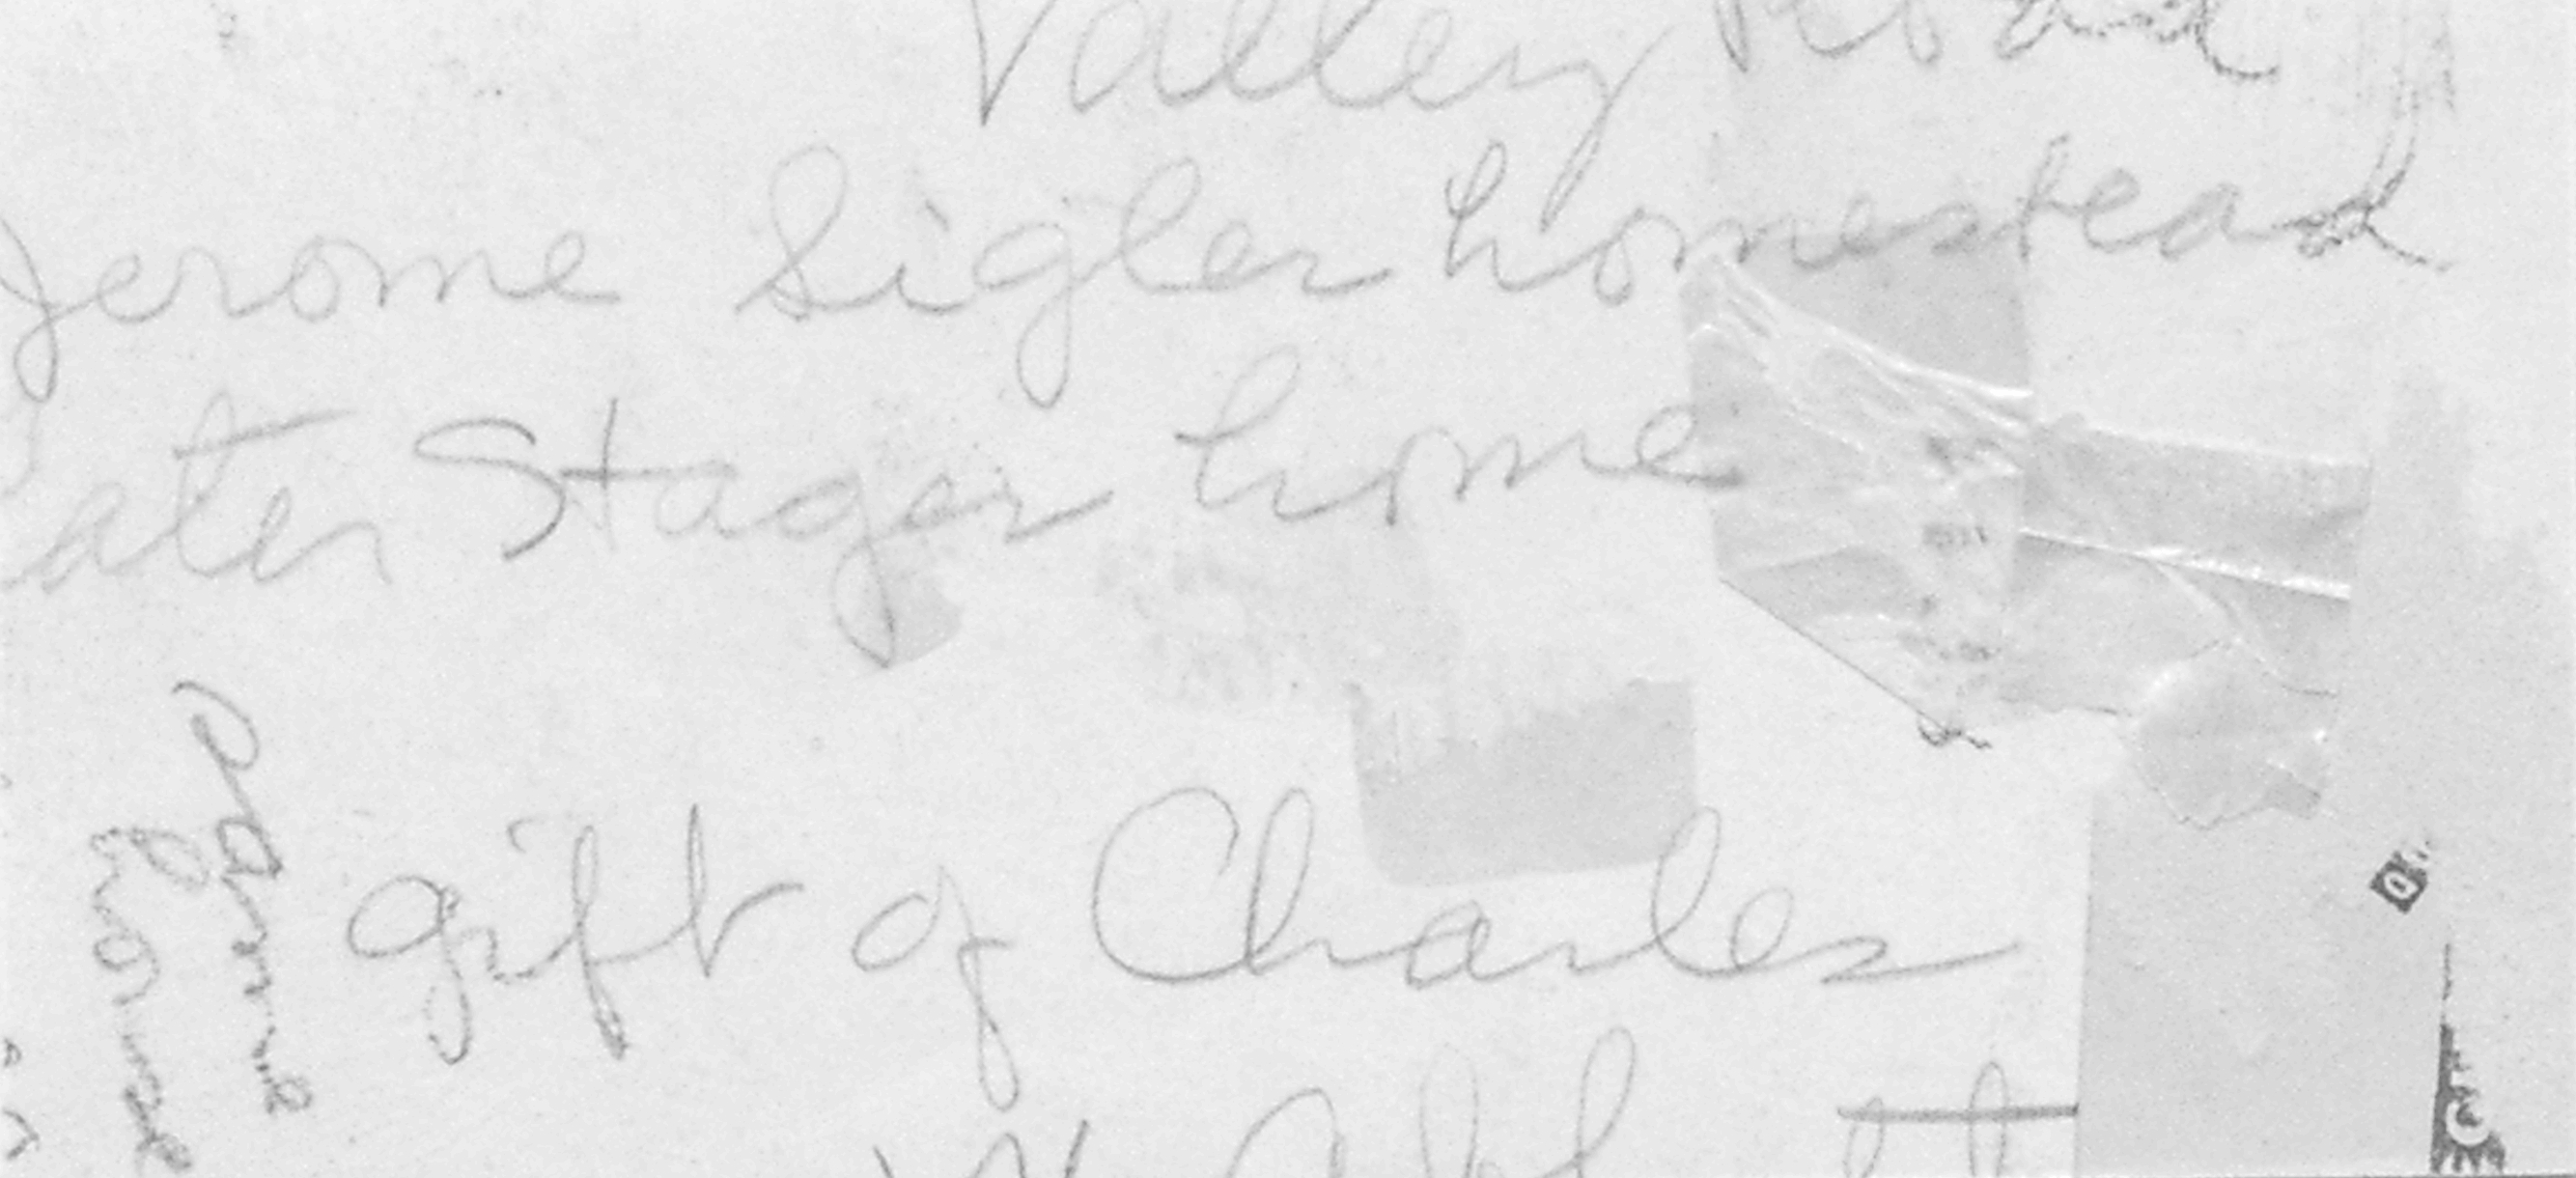 Valley Road
Jerome Sigler homestead
ater Stager home
gift of Charles